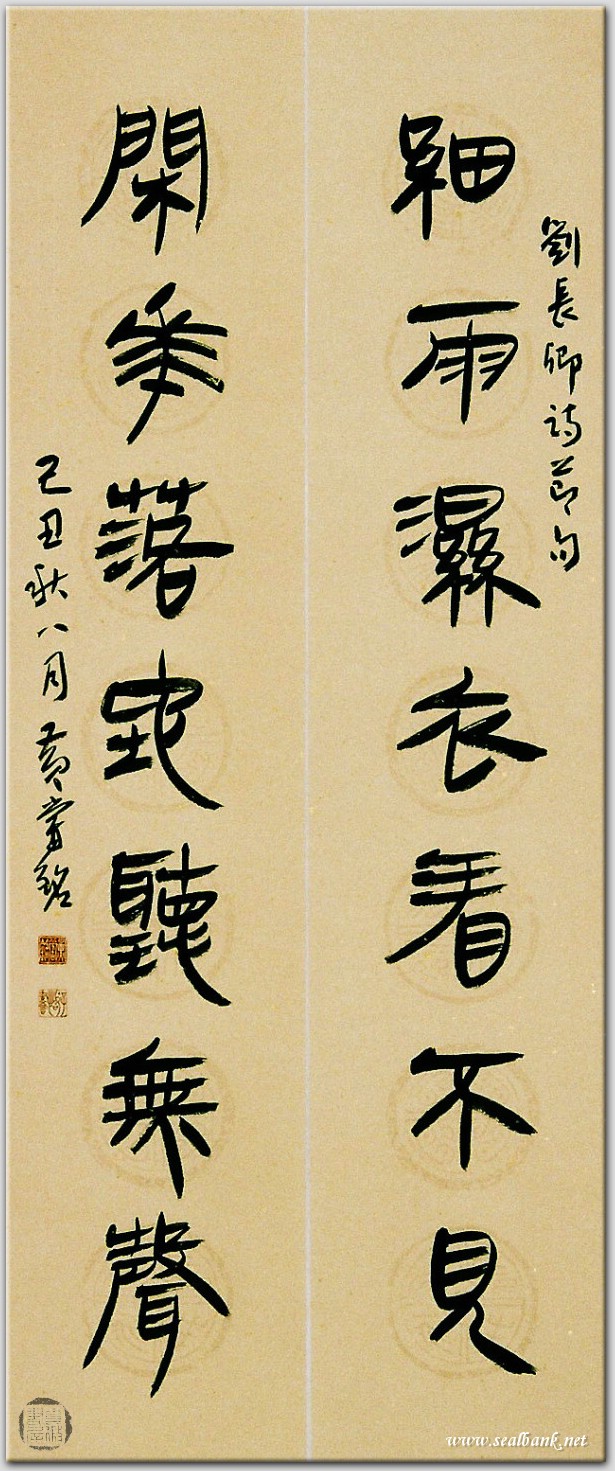 劉長卿詩節句
細雨濕衣看不見
閑花落地聽無聲
己丑秋八月黃嘗銘
www.sealbank.net